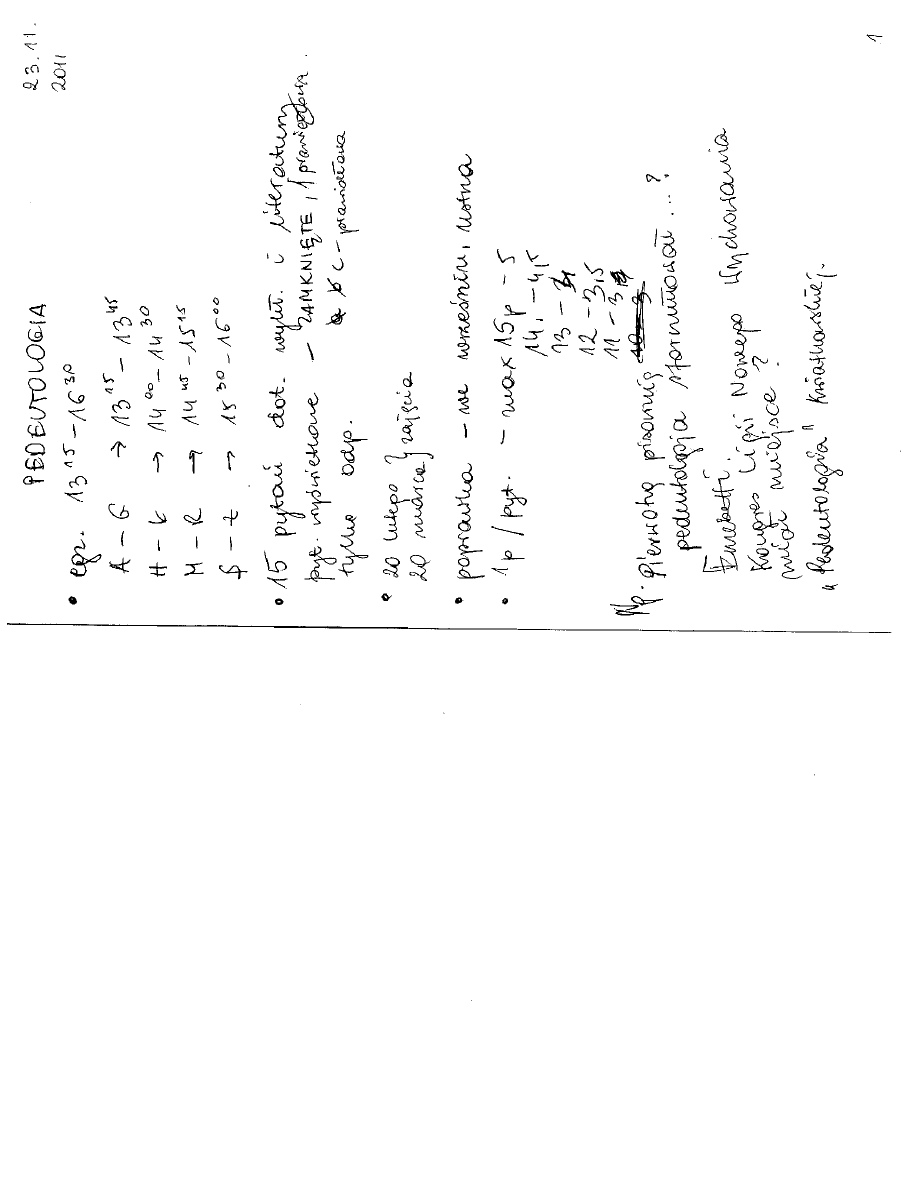 23.11.
2011
PEDEUTOLOGIA
• egz. 13¹⁵ - 16³⁰
A - G → 13¹⁵ - 13⁴⁵
H - Ł → 14⁰⁰ - 14³⁰
M - R → 14⁴⁵ - 15¹⁵
S - Ż → 15³⁰ - 16⁰⁰
• 15 pytań dot. wykł. i literatury
pyt. wyświetlone - ZAMKNIĘTE, 1 prawidłowa.
tylko odp. a b c - prawidłowa
• 20 lutego } zajęcia
20 marca
• poprawka - we wrześniu, ustna
• 1p / pyt. - max 15p - 5
14 - 4,5
13 - 4
12 - 3,5
11 - 3
Np. Pierwotną pisownię
pedeutologia sformułował...?
Kongres Ligii Nowego Wychowania
miał miejsce?
"Pedeutologia" Kwiatkowskiej.
1